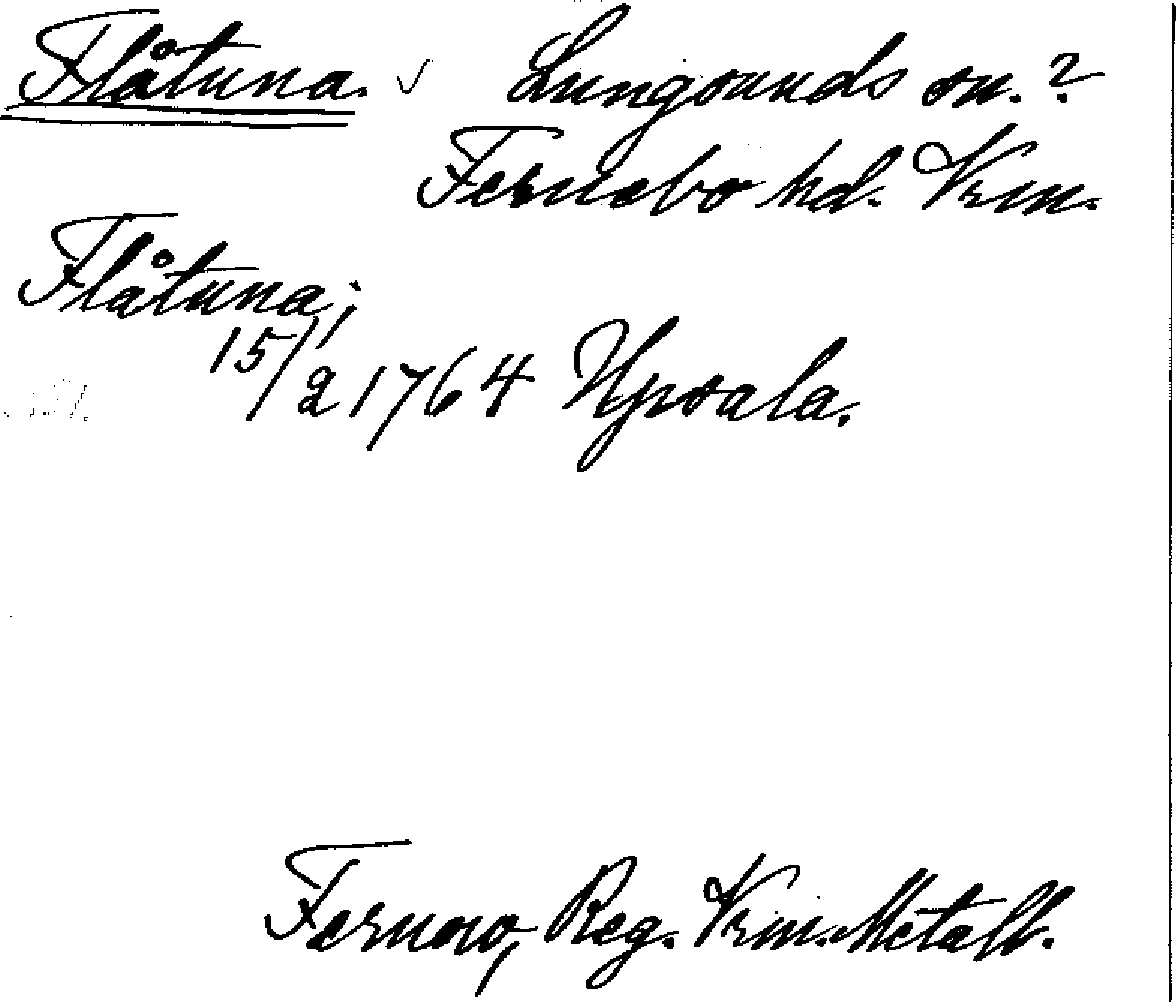 Flåtuna. √ Lungsunds sn.?
Fernebo hd. Vrm.
Flåtuna;
15/2 1764 Upsala.
Fernow, Reg. Vrm. Metall.